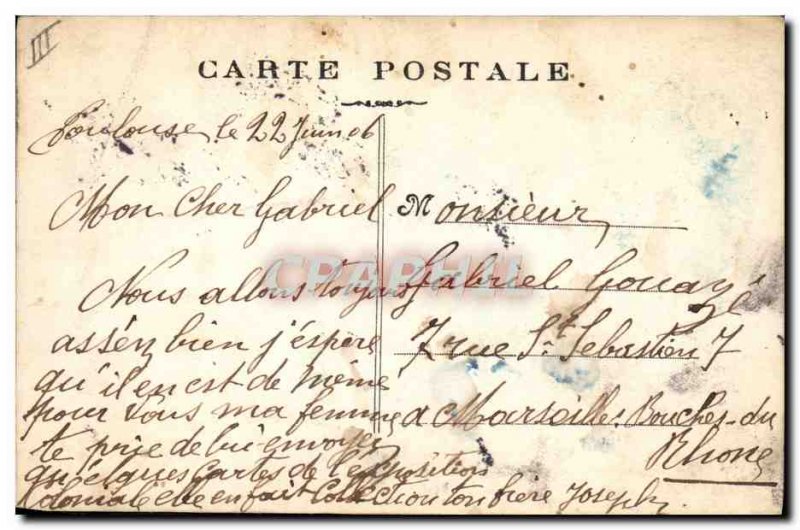 III
CARTE POSTALE
Toulouse le 22 Juin 06
Mon Cher Gabriel
Nous allons toujours
asséz bien j'éspère
qu'il en est de même
pour vous ma femme
te prie de lui envoyer
quélques Cartes de l'exposition
Coloniale elle en fait Collection ton frère Joseph
Monsieur
Gabriel Gouazé
7 rue St Sebastien 7
a Marseille Bouches-du
Rhone